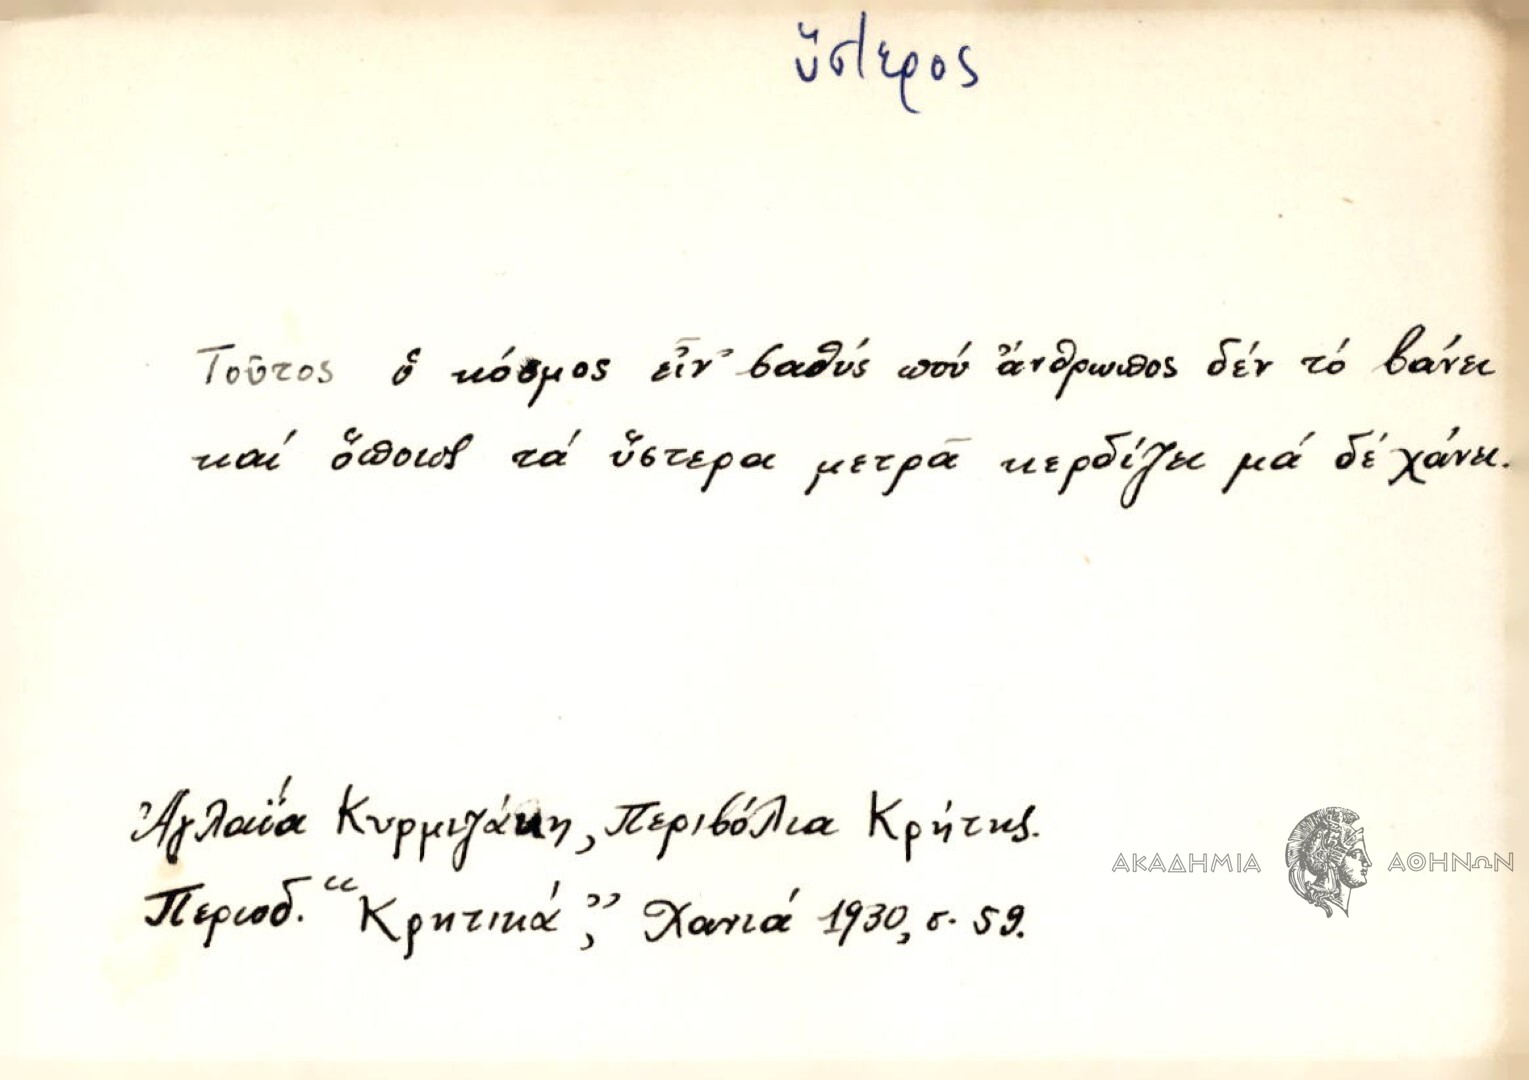 ὕστερος
Τοῦτος ὁ κόσμος εἶν' βαθύς πού ἄνθρωπος δέν τό βάνει
καί ὅποιος τά ὕστερα μετρᾶ κερδίζει μά δέ χάνει.
Ἀγλαΐα Κυρμιζάκη, Περιβόλια Κρήτης.
Περιοδ. "Κρητικά", Χανιά 1930, σ. 59.
ΑΚΑΔΗΜΙΑ ΑΘΗΝΩΝ